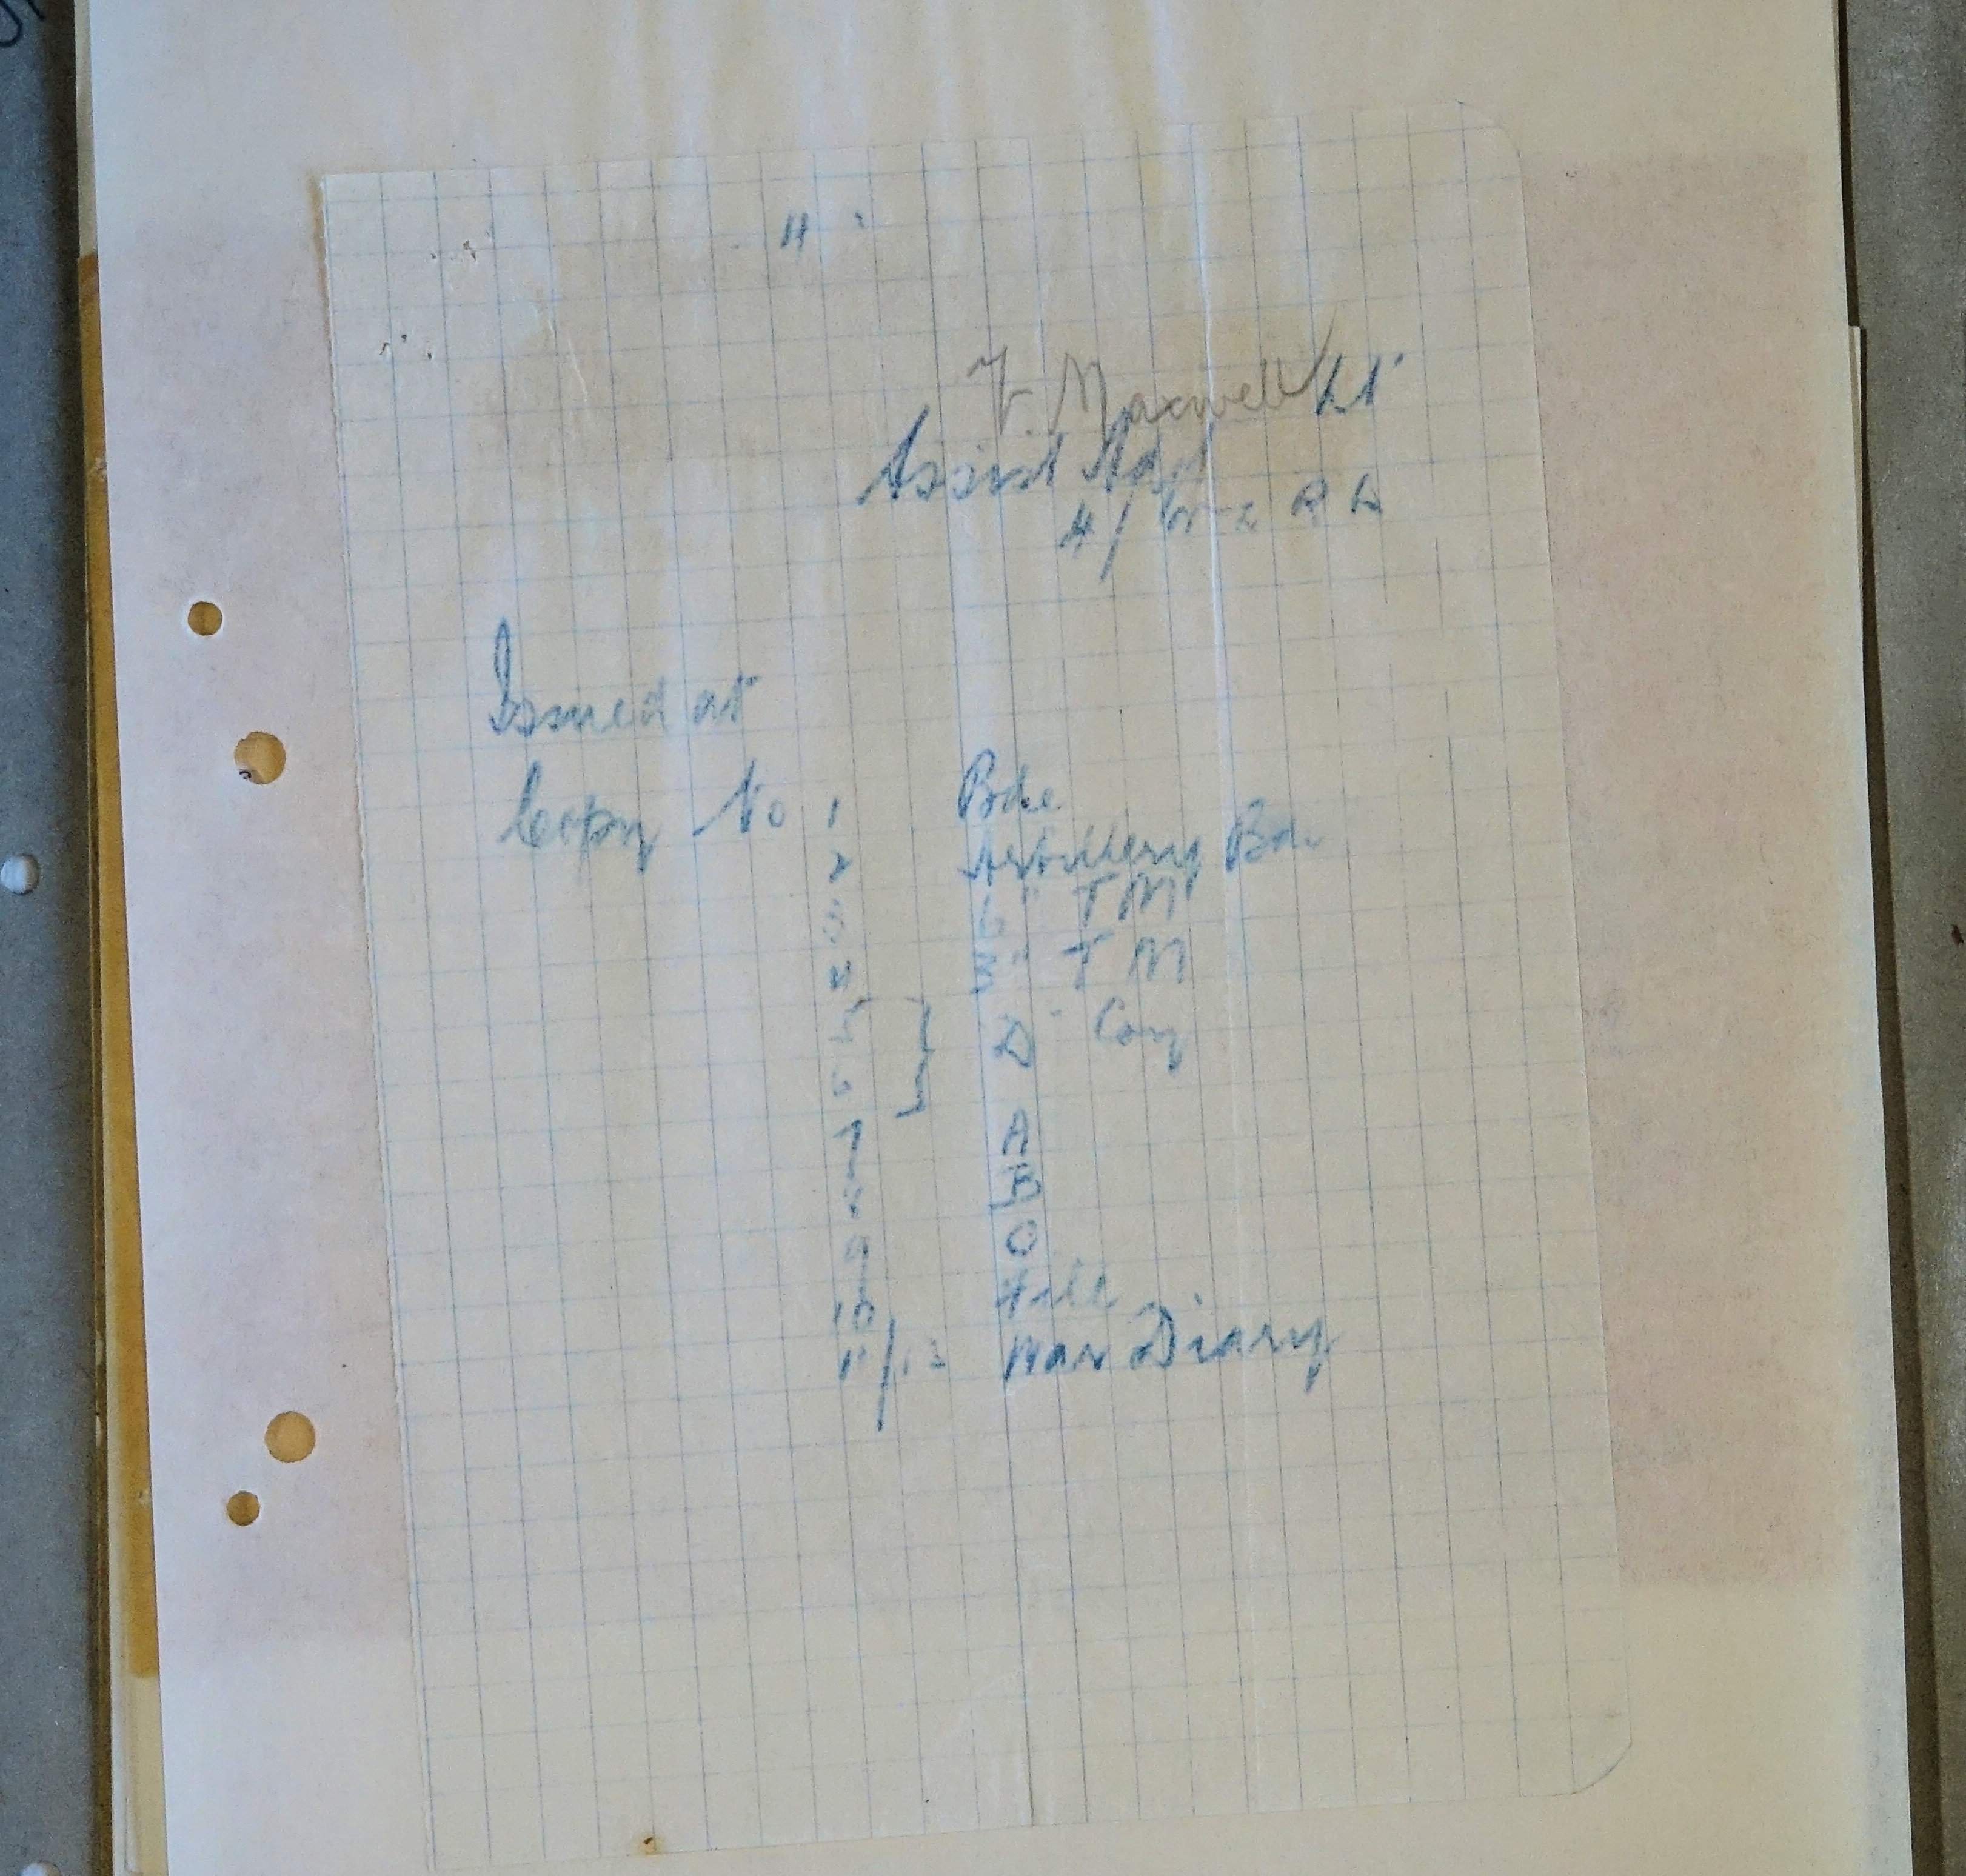 4
F. Maxwell Lt
Assist Adjt
4/ N Z R B
Issued at
Copy No 1 Bde
2 Artillery Bde
3 6" TM
4 3" TM
5
6 } D Coy
7 A
8 B
9 C
10 File
11/12 War Diary